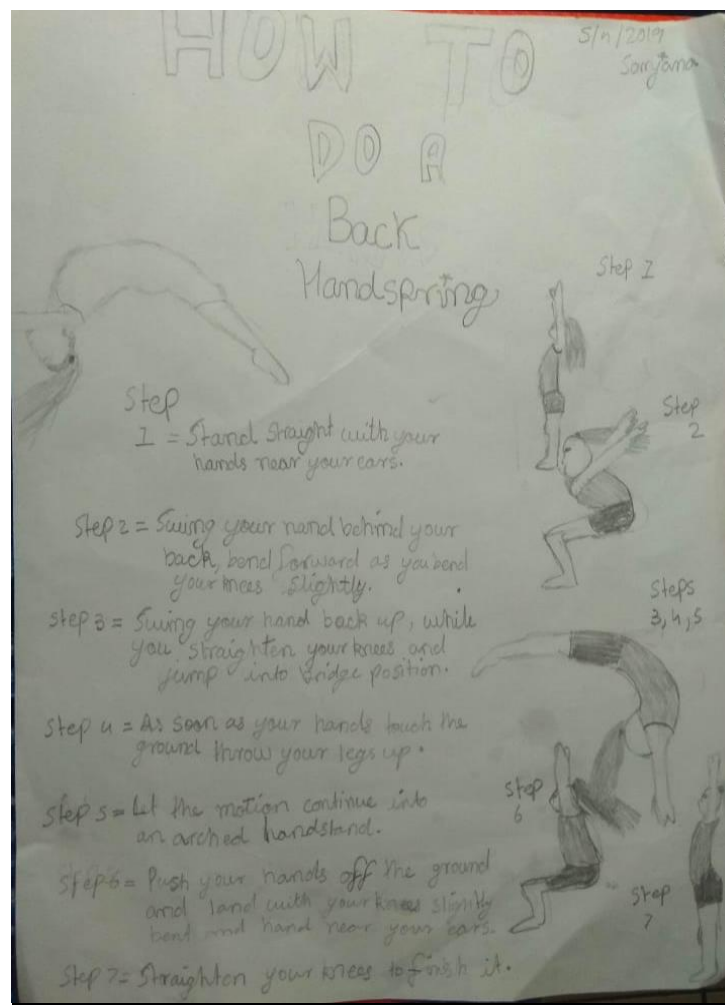 HOW TO
5/11/2019
Sanjana
DO A
Back
Handspring
Step I
Step
I = Stand straight with your
hands near your ears.
Step
2
Step 2 = Swing your hand behind your
back, bend forward as you bend
your knees slightly.
Steps
3, 4, 5
Step 3 = Swing your hand back up, while
you straighten your knees and
jump into bridge position.
Step 4 = As soon as your hands touch the
ground throw your legs up.
Step
6
Step 5 = Let the motion continue into
an arched handstand.
Step 6 = Push your hands off the ground
and land with your knees slightly
bent and hand near your ears.
Step
7
Step 7 = Straighten your knees to finish it.